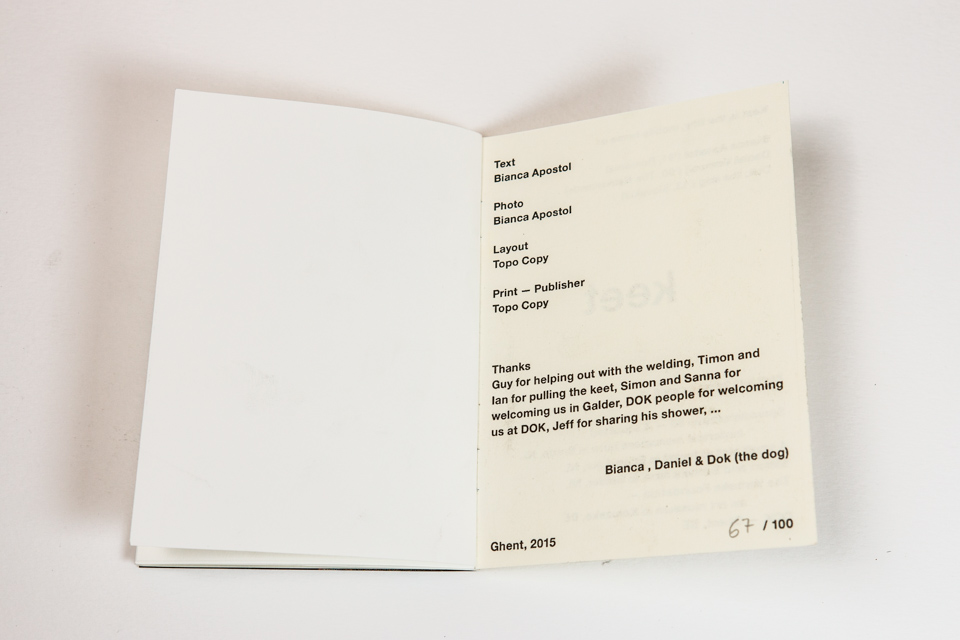 Text
Bianca Apostol
Photo
Bianca Apostol
Layout
Topo Copy
Print — Publisher
Topo Copy
Thanks
Guy for helping out with the welding, Timon and
Ian for pulling the keet, Simon and Sanna for
welcoming us in Galder, DOK people for welcoming
us at DOK, Jeff for sharing his shower, ...
Bianca , Daniel & Dok (the dog)
67 / 100
Ghent, 2015
keet